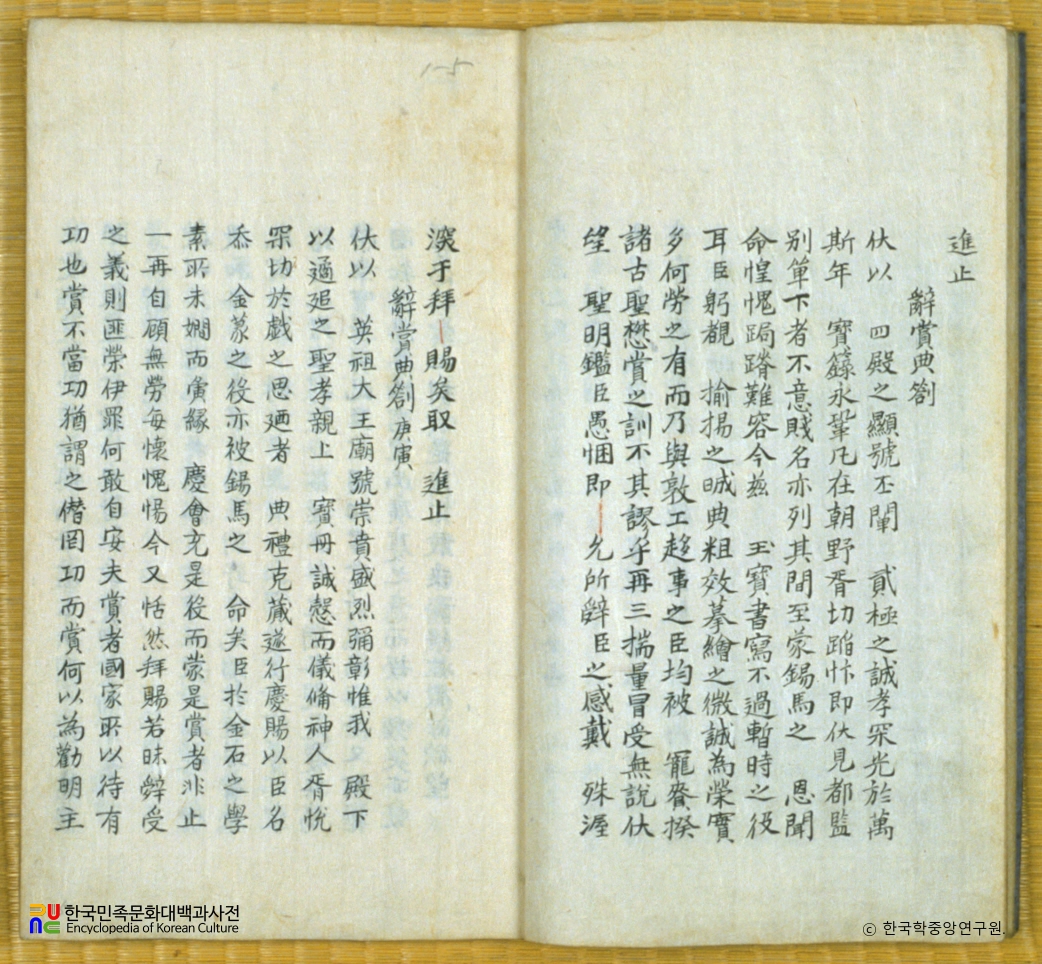 進止
辭賞典劄
伏以 四殿之顯號丕闡 貳極之誠孝冞光於萬
斯年 寶籙永鞏凡在朝野胥切蹈忭即伏見都監
別單下者不意賤名亦列其間至蒙錫馬之 恩聞
命惶愧跼蹐難容今玆 玉寶書寫不過暫時之役
耳臣躬覩 揄揚之晠典粗效摹繪之微誠為榮實
多何勞之有而乃與敦工趍事之臣均被 寵賚揆
諸古聖懋賞之訓不其謬乎再三揣量冒受無說伏
望 聖明鑑臣愚悃即允所辭臣之感戴 殊渥
深于拜賜矣取 進止
辭賞典劄 庚寅
伏以 英祖大王廟號崇賁盛烈彌彰惟我 殿下
以遹追之聖孝親上 寶冊誠慤而儀俻神人胥悅
冞切於戲之思廼者 典禮克蕆遂行慶賜以臣名
忝金篆之役亦被錫馬之 命矣臣於金石之學
素所未嫺而夤緣 慶會充是役而蒙是賞者非止
一再自顧無勞每懷愧惕今又恬然拜賜若昧辤受
之義則匪榮伊罪何敢自安夫賞者國家所以待有
功也賞不當功猶謂之僭罔功而賞何以為勸明主
1-5
한국민족문화대백과사전
Encyclopedia of Korean Culture
© 한국학중앙연구원.